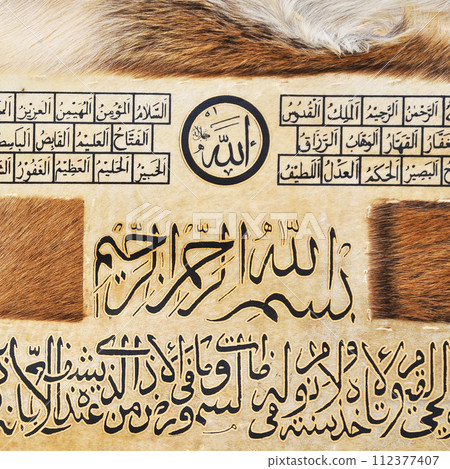 الرحمن الرحيم الملك القدوس السلام المؤمن المهيمن العزيز
الله جل جلاله
الغفار القهار الوهاب الرزاق الفتاح العليم القابض الباسط
البصير الحكم العدل اللطيف الخبير الحليم العظيم الغفور
PIXTA
بسم الله الرحمن الرحيم
الحي القيوم لا تأخذه سنة ولا نوم له ما في السموات وما في الأرض من ذا الذي يشفع عنده إلا بإذنه
pixta.jp - 112377407